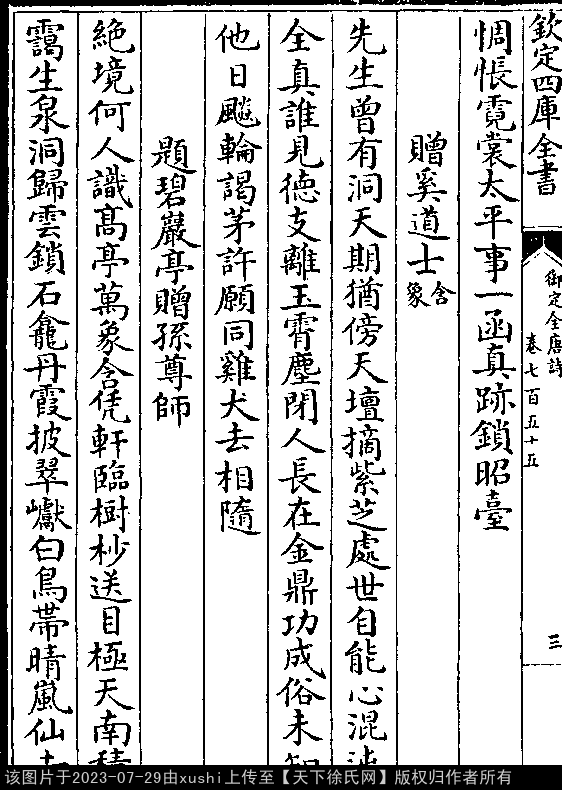 欽定四庫全書
御定全唐詩
卷七百五十五
三
惆悵霓裳太平事一函真跡鎖昭臺
贈奚道士含象
先生曾有洞天期猶傍天壇摘紫芝處世自能心混
全真誰見徳支離玉霄塵閉人長在金鼎功成俗未知
他日飈輪謁茅許願同雞犬去相隨
題碧巖亭贈孫尊師
絶境何人識髙亭萬象含凭軒臨樹杪送目極天南積
靄生泉洞歸雲鎖石龕丹霞披翠巘白鳥帯晴嵐仙
该图片于2023-07-29由xushi上传至【天下徐氏网】版权归作者所有